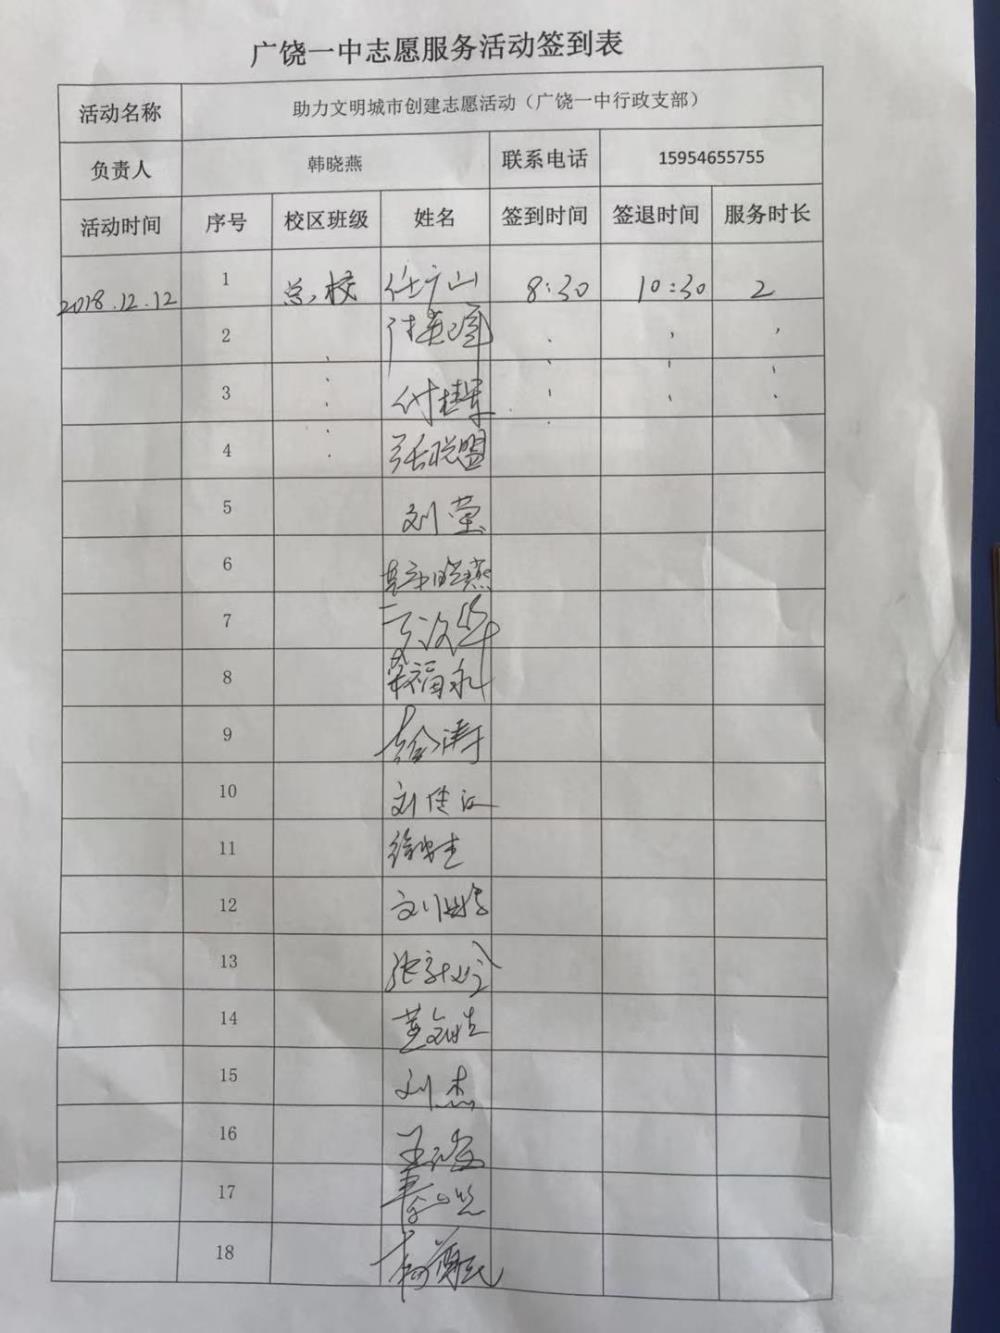 广饶一中志愿服务活动签到表
活动名称 助力文明城市创建志愿活动（广饶一中行政支部）
负责人 韩晓燕 联系电话 15954655755
活动时间 序号 校区班级 姓名 签到时间 签退时间 服务时长
2018.12.12 1 总校 任广山 8:30 10:30 2
2
3 付桂军
4 张联盟
5 刘莹
6 韩晓燕
7
8 荣福永
9 徐涛
10 刘佳
11
12 刘
13 张
14
15 刘杰
16 王
17 李
18